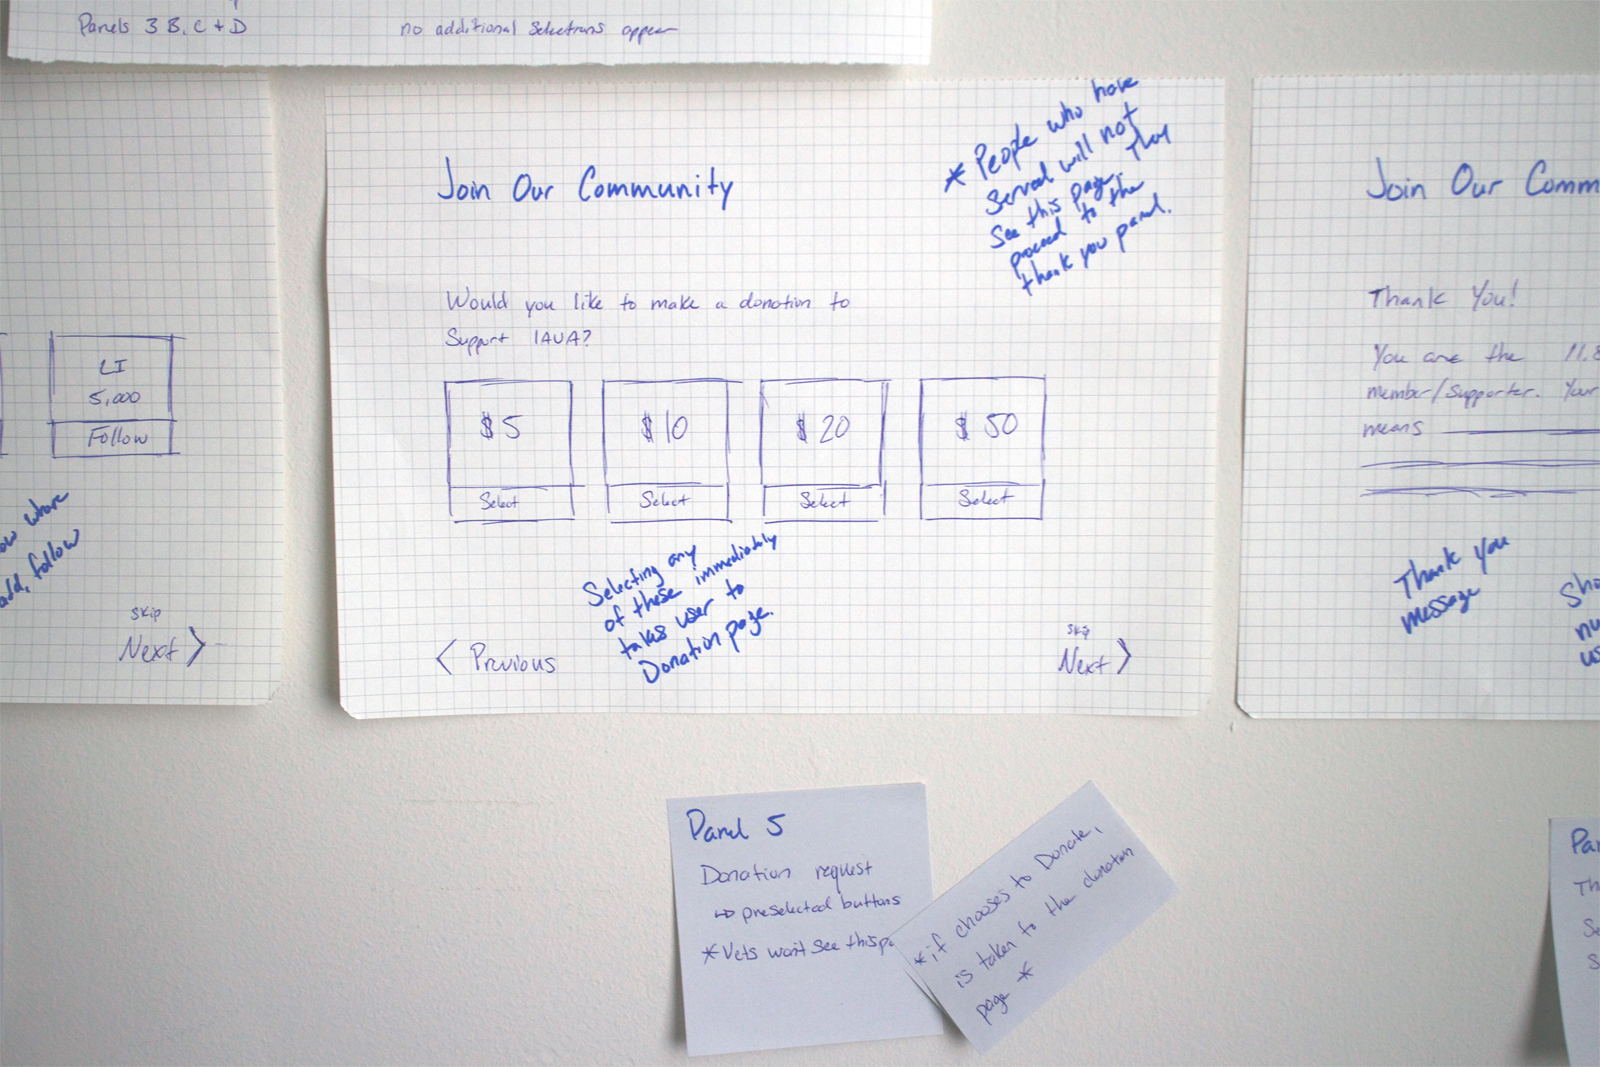 Panels 3 B, C + D
no additional selections appear
LI
5,000
Follow
where
add, follow
skip
Next >
Join Our Community
* People who have
served will not
see this page. They
proceed to the
thank you panel.
Would you like to make a donation to
Support IAVA?
$5
$10
$20
$50
Select
Select
Select
Select
Selecting any
of these immediately
takes user to
Donation page.
< Previous
skip
Next >
Join Our Comm
Thank You!
You are the 11.8
member/supporter. Your
means
Thank you
message
Panel 5
Donation request
↳ preselected buttons
* Vets won't see this
* if chooses to Donate,
is taken to the donation
page *